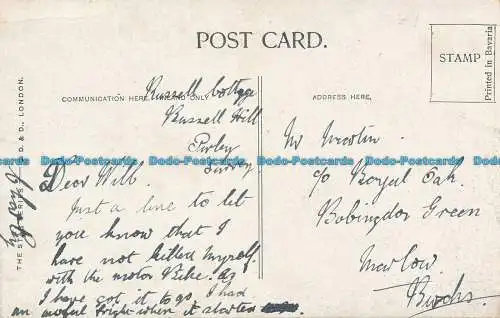 POST CARD.
STAMP
Printed in Bavaria
COMMUNICATION HERE, INLAND ONLY
ADDRESS HERE,
Russell Cottage
Russell Hill
Purley
Surrey
Dear Will.
Just a line to let
you know that I
have not killed myself
with the motor Bike. as
I have got it to go, I had
an awful fright when it started
Mr Newton
c/o Royal Oak
Bobingdon Green
Marlow.
Bucks.
THE STAR SERIES D. & D., LONDON.
Dodo-Postcards Dodo-Postcards Dodo-Postcards Dodo-Postcards Dodo-Postcards